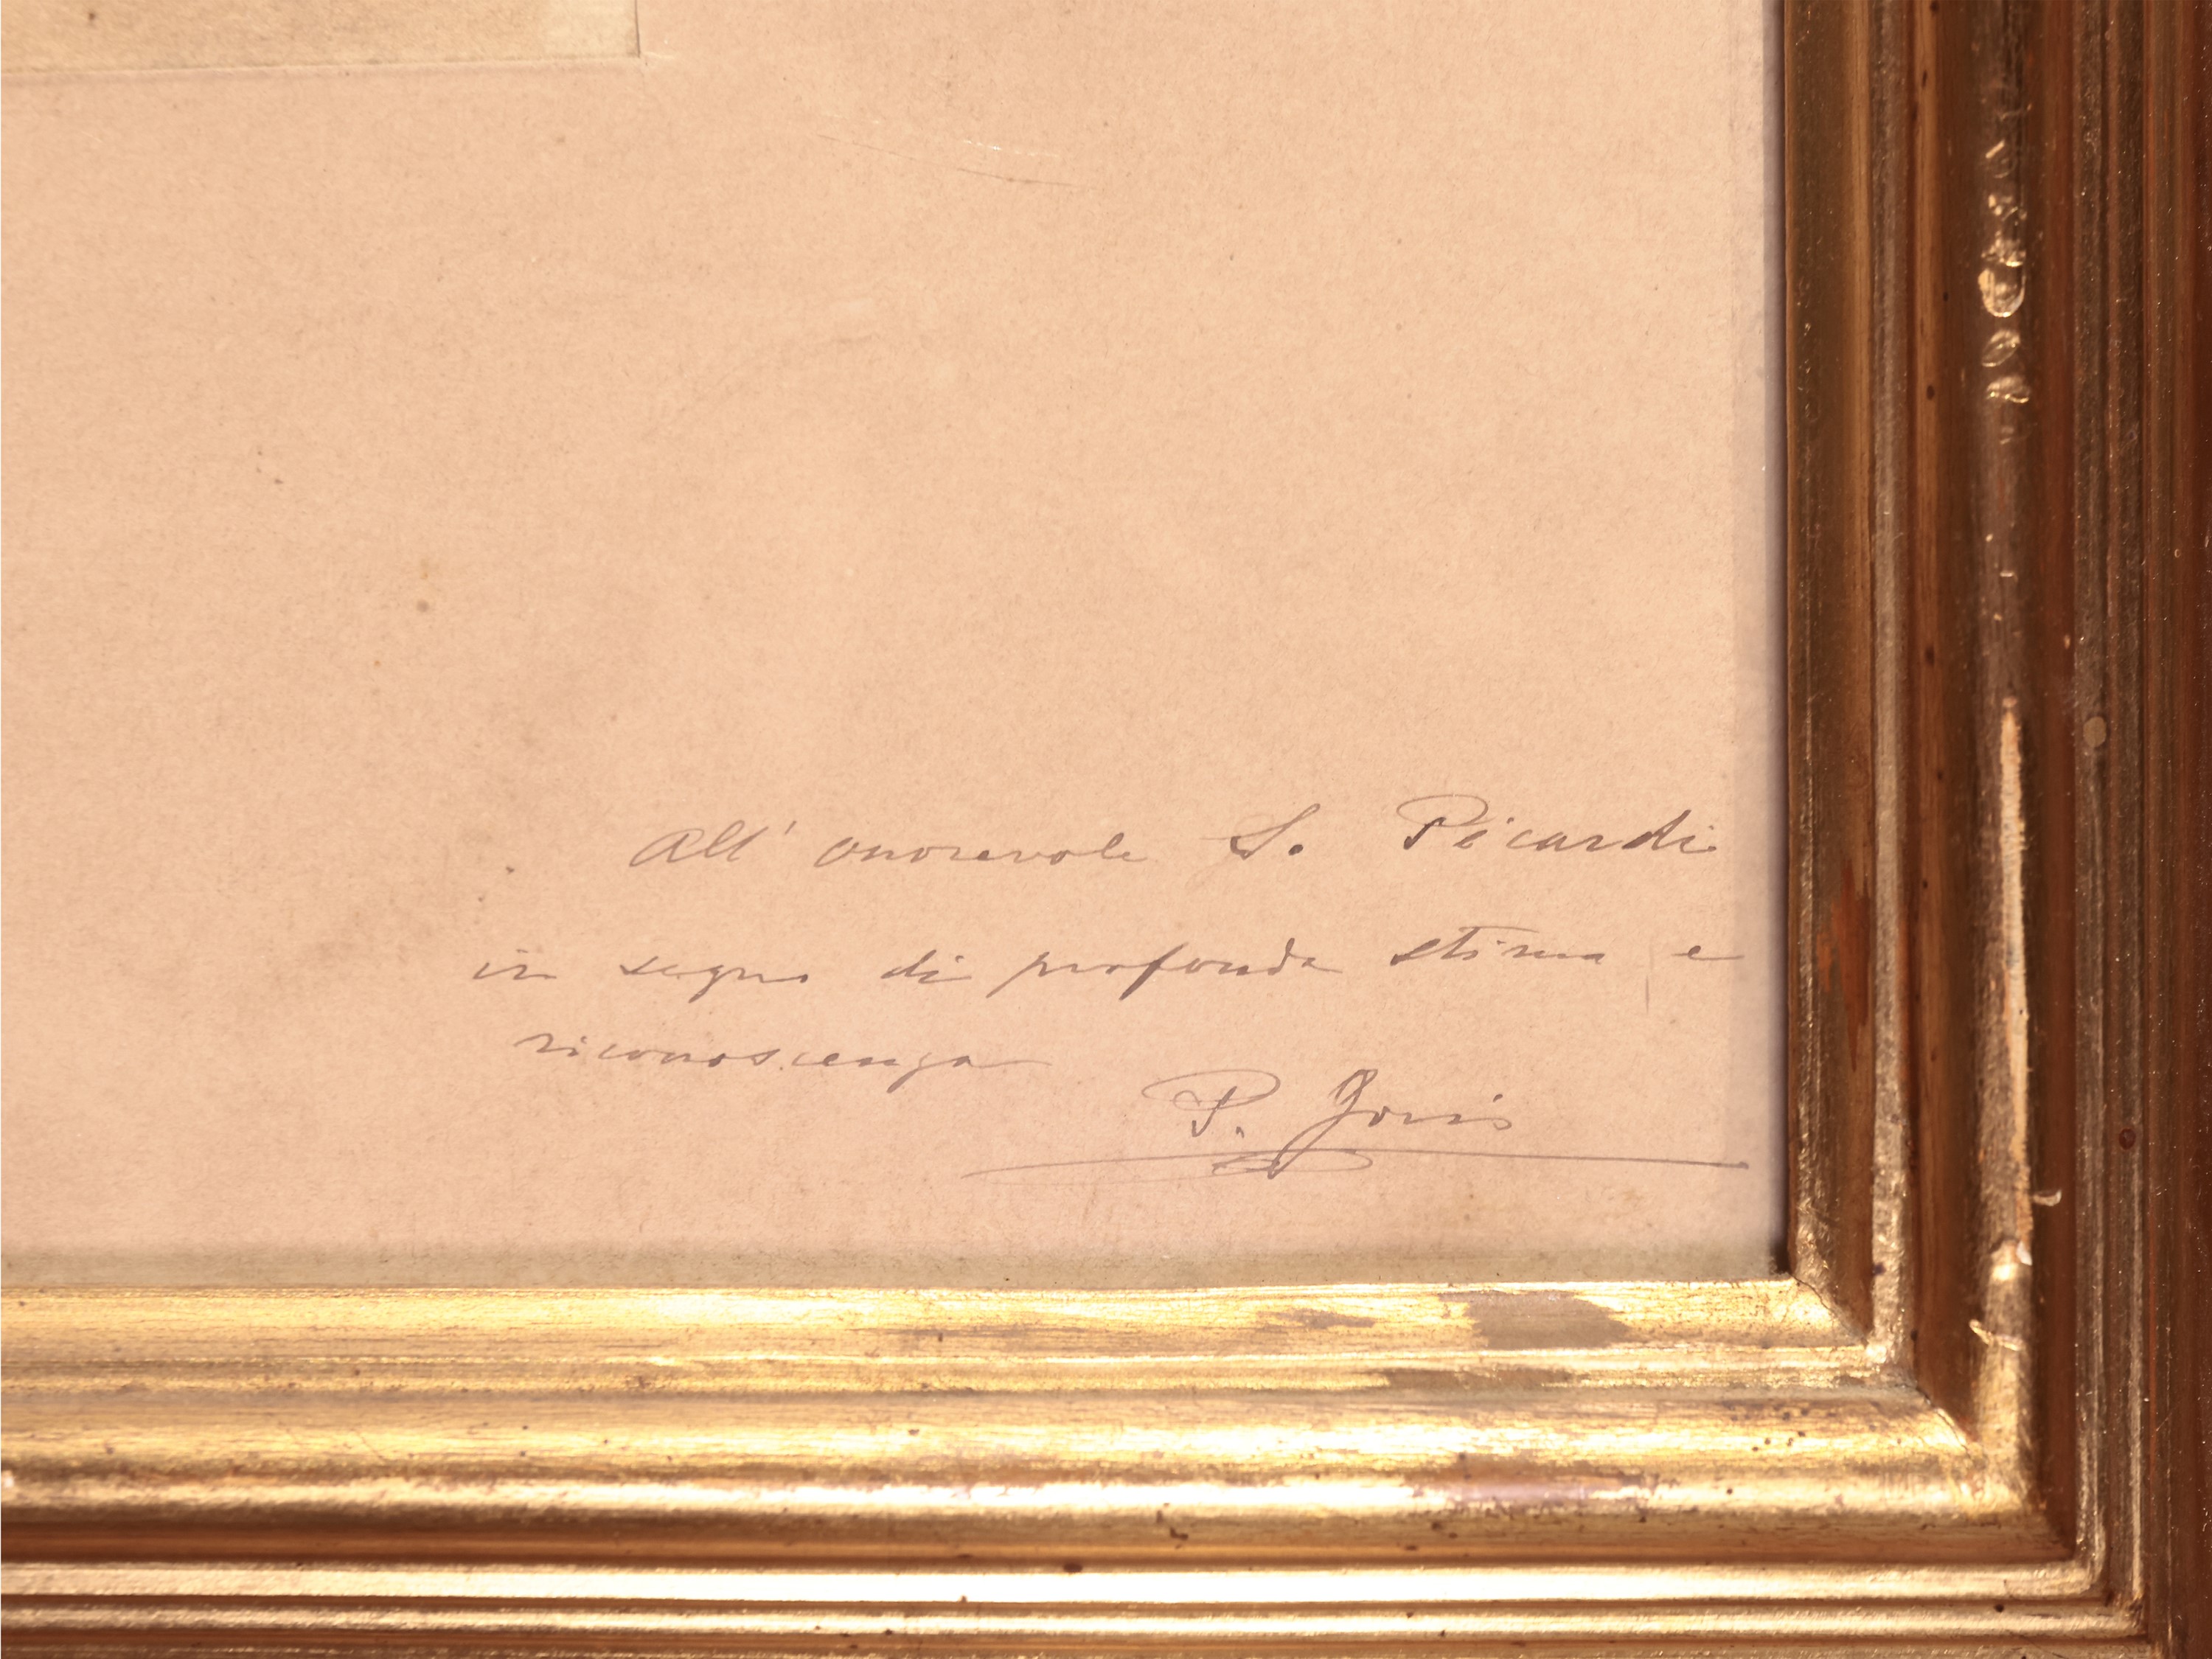 All' onorevole S. Picardi
in segno di profonda stima e
riconoscenza
P. Joris